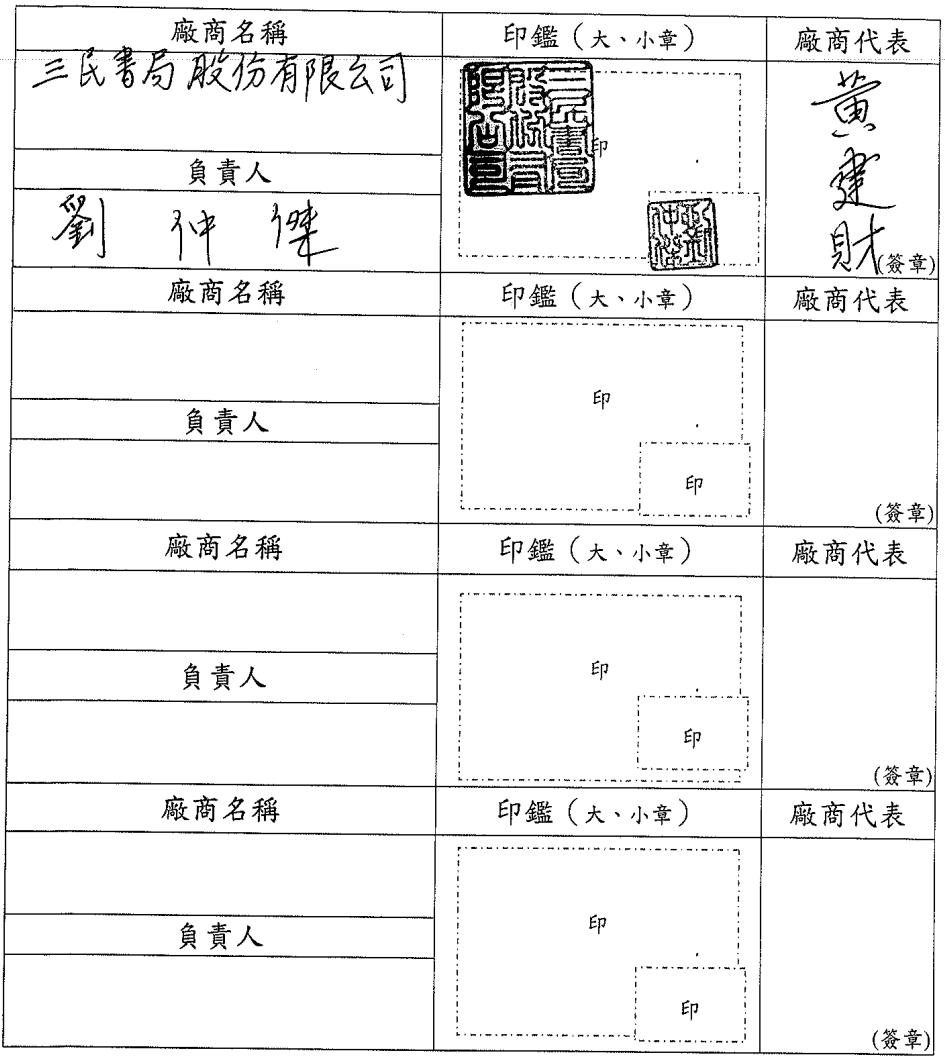 廠商名稱 印鑑（大、小章） 廠商代表
三民書局股份有限公司
三民書局股份有限公司
印
黃建財
負責人
劉仲傑
劉仲傑
(簽章)
廠商名稱 印鑑（大、小章） 廠商代表
印
負責人
印
(簽章)
廠商名稱 印鑑（大、小章） 廠商代表
印
負責人
印
(簽章)
廠商名稱 印鑑（大、小章） 廠商代表
印
負責人
印
(簽章)